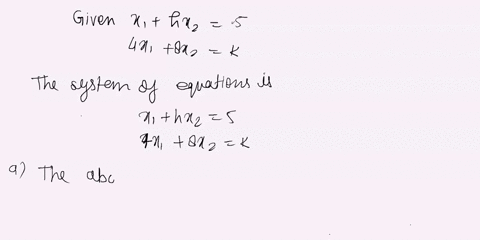 Given x₁ + hx₂ = 5
4x₁ + 8x₂ = k
The system of equations is
x₁ + hx₂ = 5
4x₁ + 8x₂ = k
a) The abo